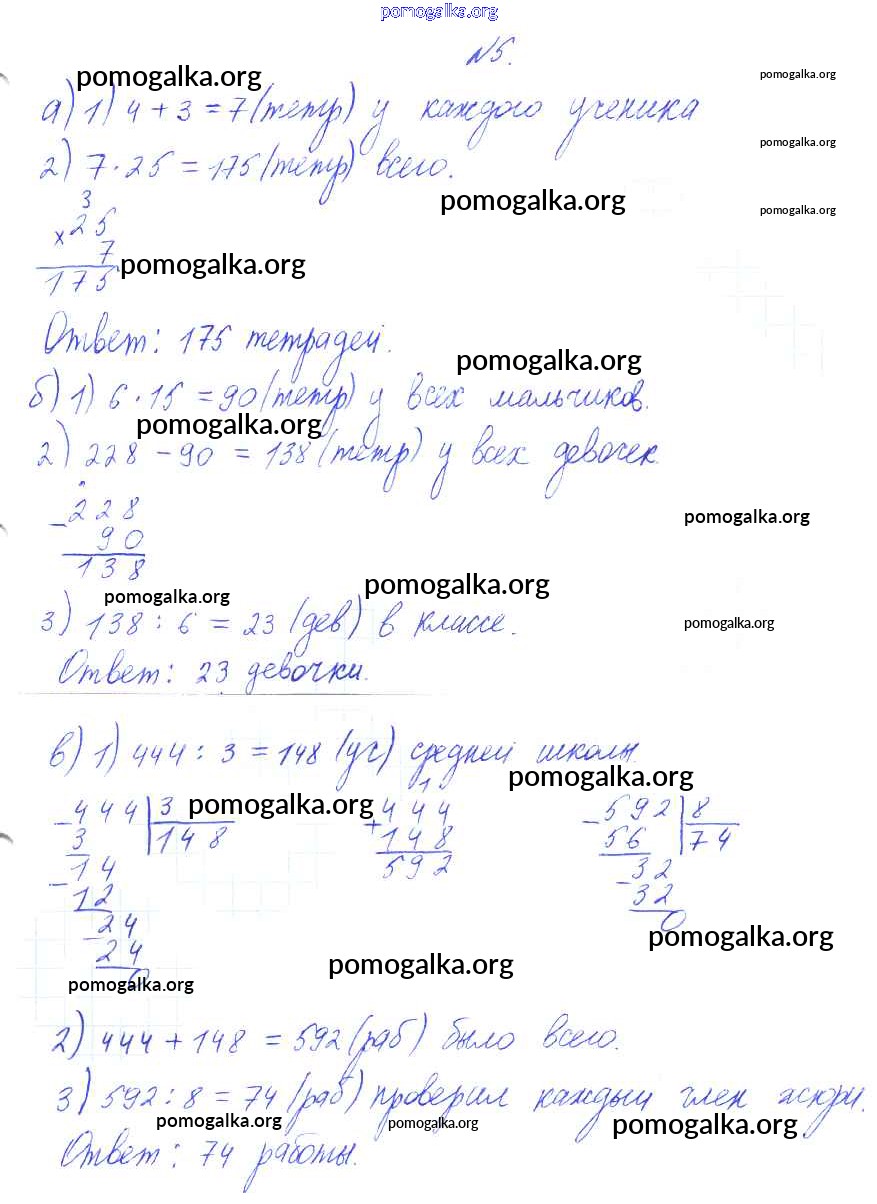 pomogalka.org
№5.
pomogalka.org
pomogalka.org
а) 1) 4 + 3 = 7 (тетр) у каждого ученика
pomogalka.org
2) 7 · 25 = 175 (тетр) всего.
pomogalka.org
pomogalka.org
3
× 25
7
175
pomogalka.org
Ответ: 175 тетрадей.
pomogalka.org
б) 1) 6 · 15 = 90 (тетр) у всех мальчиков.
pomogalka.org
2) 228 – 90 = 138 (тетр) у всех девочек
– 228
90
138
pomogalka.org
pomogalka.org
pomogalka.org
3) 138 : 6 = 23 (дев) в классе.
pomogalka.org
Ответ: 23 девочки.
в) 1) 444 : 3 = 148 (уч) средней школы.
pomogalka.org
– 444 | 3
3 148
– 14
12
– 24
24
0
pomogalka.org
1
+ 444
148
592
– 592 | 8
56 74
– 32
32
0
pomogalka.org
pomogalka.org
pomogalka.org
2) 444 + 148 = 592 (раб) было всего.
3) 592 : 8 = 74 (раб) проверил каждый член жюри.
pomogalka.org
pomogalka.org
pomogalka.org
Ответ: 74 работы.